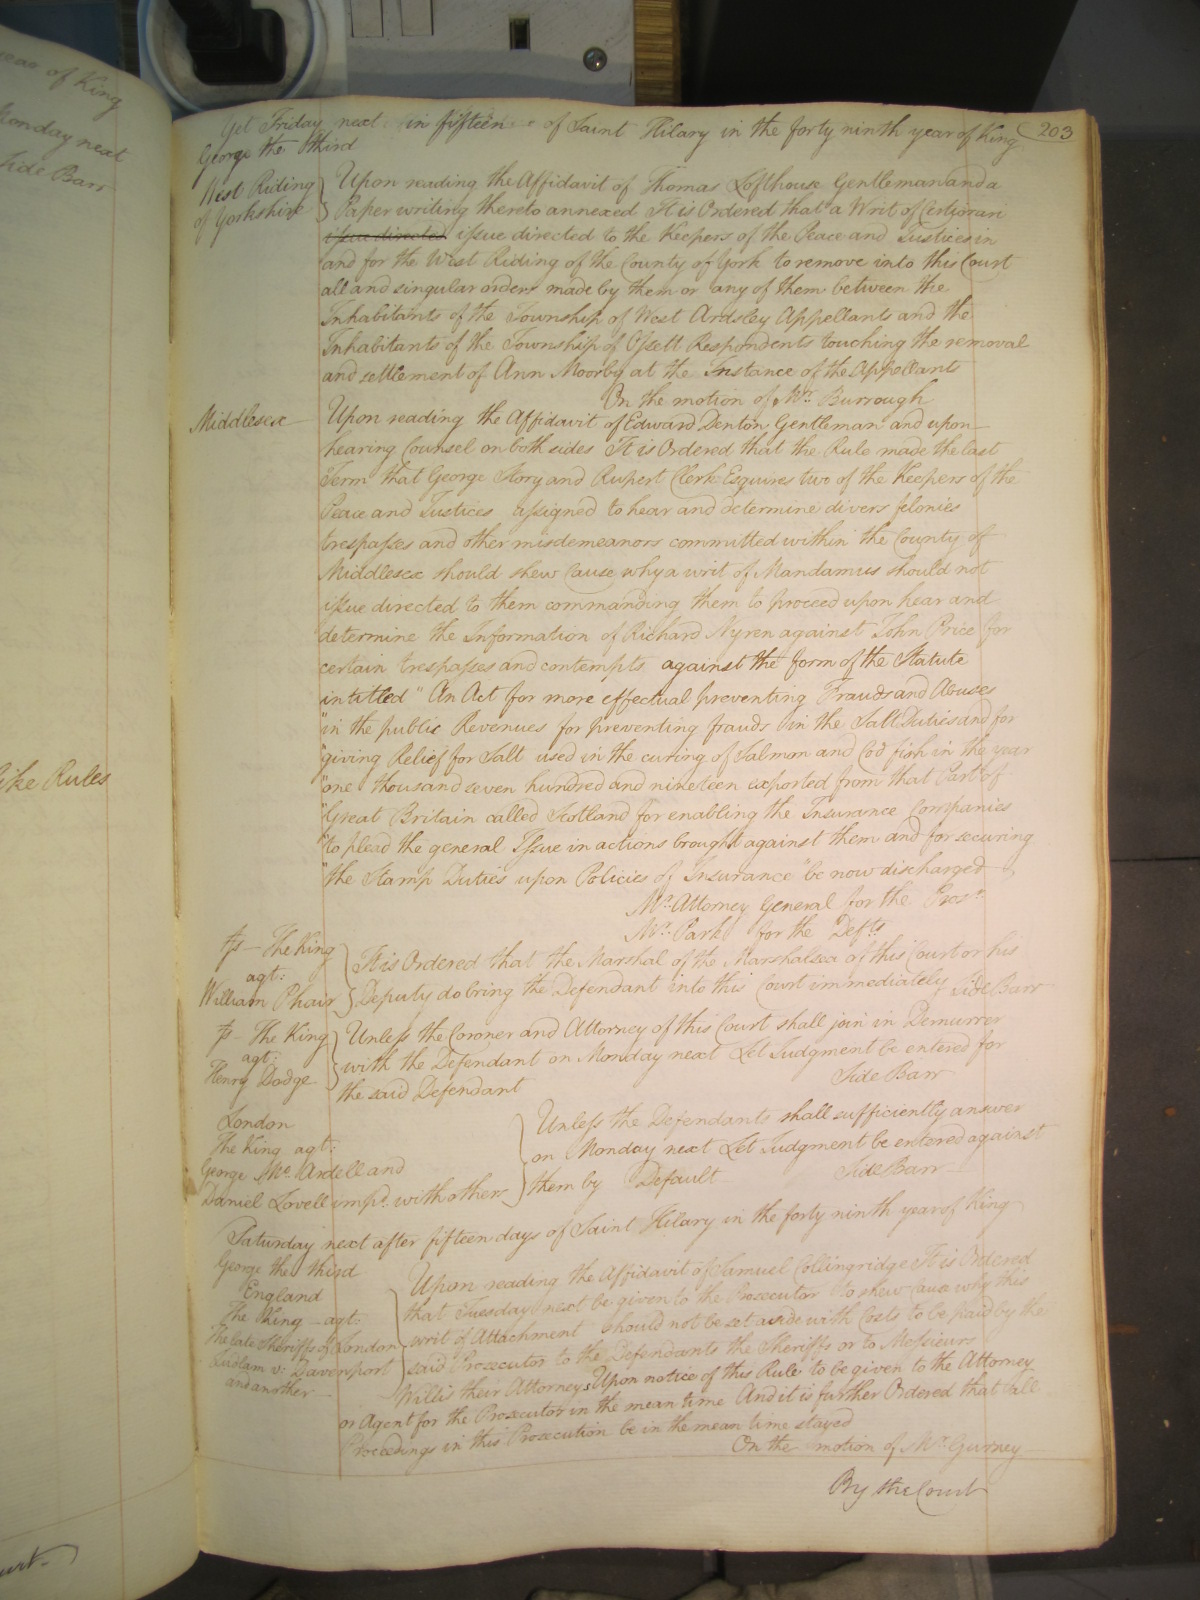 year of King
Monday next
Side Barr
like Rules
203
Yet Friday next in fifteen of Saint Hilary in the forty ninth year of King
George the third
West Riding
of Yorkshire
Upon reading the Affidavit of Thomas Lofthouse Gentleman and a
Paper writing thereto annexed It is Ordered that a Writ of Certiorari
issue directed issue directed to the Keepers of the Peace and Justices in
and for the West Riding of the County of York to remove into this Court
all and singular orders made by them or any of them between the
Inhabitants of the Township of West Ardsley Appellants and the
Inhabitants of the Township of Ossett Respondents touching the removal
and settlement of Ann Moorby at the Instance of the Appellants
On the motion of Mr. Burrough
Middlesex
Upon reading the Affidavit of Edward Denton Gentleman and upon
hearing Counsel on both sides It is Ordered that the Rule made the last
Term that George Story and Rupert Clerk Esquires two of the Keepers of the
Peace and Justices assigned to hear and determine divers felonies
trespasses and other misdemeanors committed within the County of
Middlesex should shew Cause why a writ of Mandamus should not
issue directed to them commanding them to proceed upon hear and
determine the Information of Richard Nyren against John Price for
certain trespasses and contempts against the form of the Statute
intitled "An Act for more effectual preventing Frauds and Abuses
"in the public Revenues for preventing frauds in the Salt Duties and for
"giving Relief for Salt used in the curing of Salmon and Cod fish in the year
"one thousand seven hundred and nineteen exported from that Part of
"Great Britain called Scotland for enabling the Insurance Companies
"to plead the general Issue in actions brought against them and for securing
"the Stamp Duties upon Policies of Insurance" be now discharged
Mr. Attorney General for the Prosr.
Mr. Park for the Defts.
The King
agt:
William Phair
It is Ordered that the Marshal of the Marshalsea of this Court or his
Deputy do bring the Defendant into this Court immediately Side Barr
The King
agt:
Henry Dodge
Unless the Coroner and Attorney of this Court shall join in Demurrer
with the Defendant on Monday next Let Judgment be entered for
the said Defendant Side Barr
London
The King agt:
George Mc. Ardell and
Daniel Lovell impd. with others
Unless the Defendants shall sufficiently answer
on Monday next Let Judgment be entered against
them by Default Side Barr
Saturday next after fifteen days of Saint Hilary in the forty ninth year of King
George the third
England
The King agt:
The late Sheriffs of London
Ludlam v: Davenport
and another
Upon reading the Affidavit of Samuel Collingridge It is Ordered
that Tuesday next be given to the Prosecutor to shew Cause why this
writ of Attachment should not be set aside with Costs to be paid by the
said Prosecutor to the Defendants the Sheriffs or to Messieurs
Willis their Attorneys Upon notice of this Rule to be given to the Attorney
or Agent for the Prosecutor in the mean time And it is further Ordered that all
Proceedings in this Prosecution be in the mean time stayed
On the motion of Mr. Gurney
By the Court